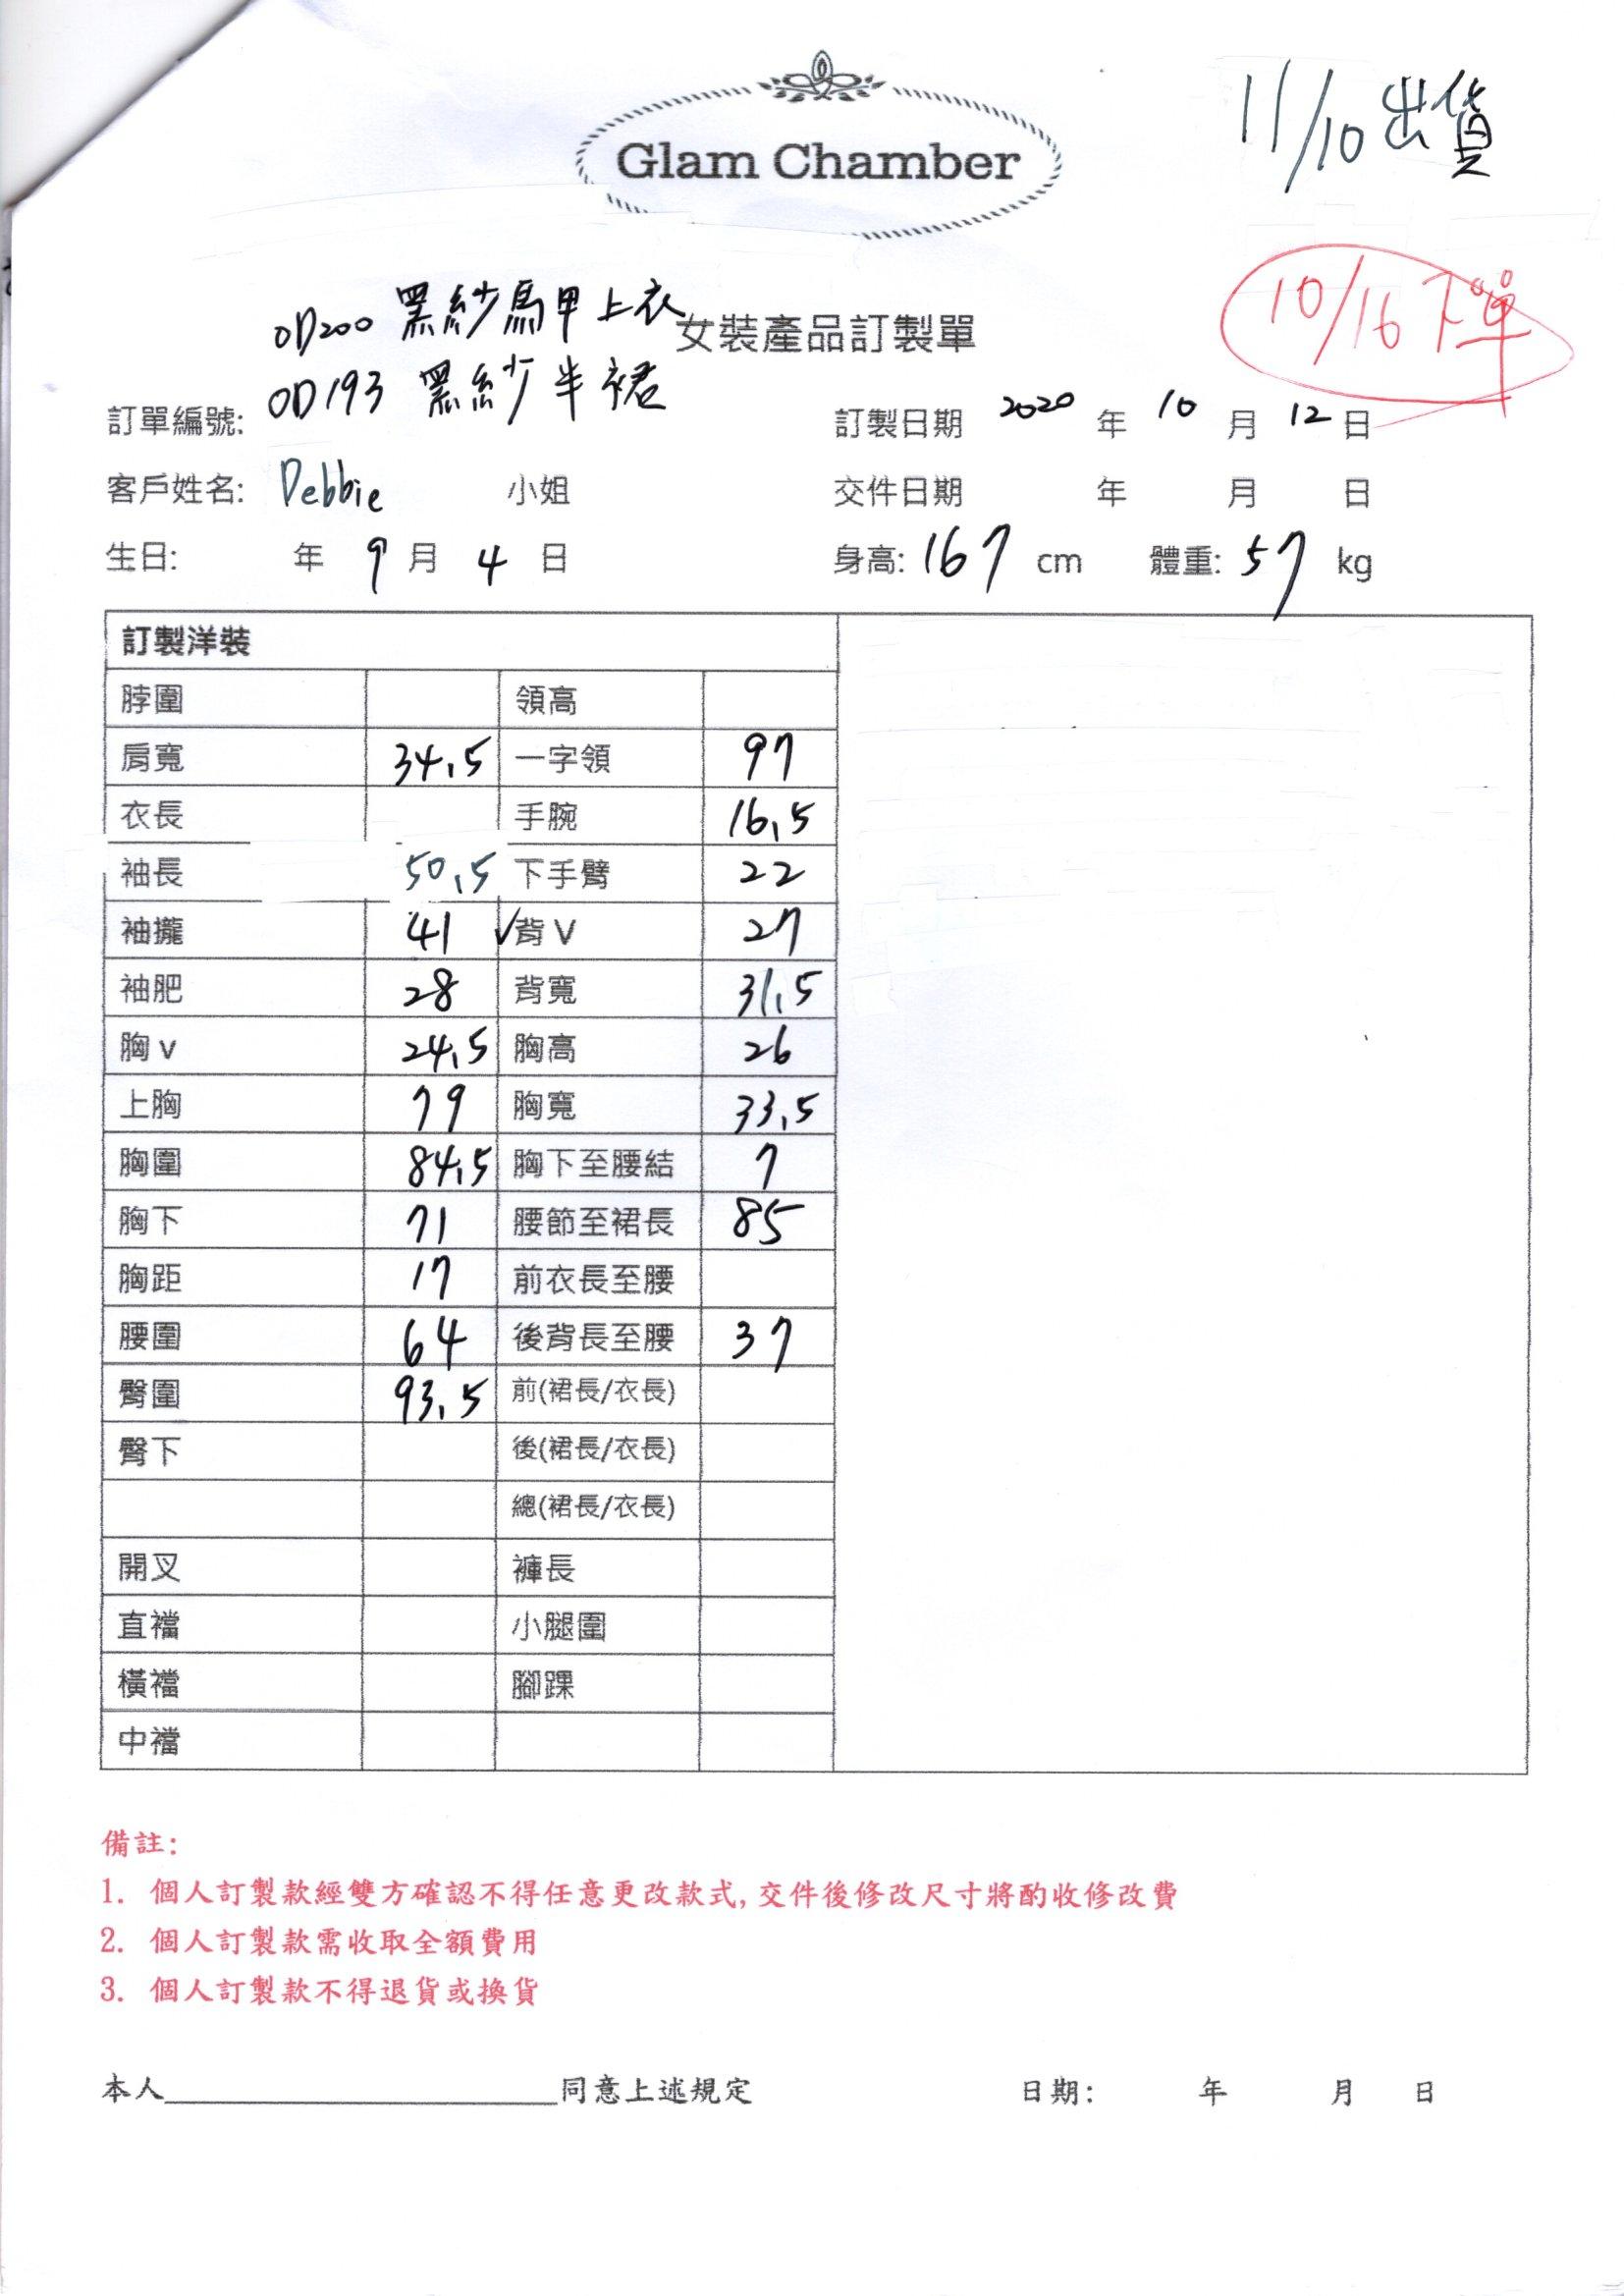 11/10 出貨
Glam Chamber
10/16 下單
OD200 黑紗馬甲上衣
女裝產品訂製單
OD193 黑紗半裙
訂單編號: 訂製日期 2020 年 10 月 12 日
客戶姓名: Debbie 小姐 交件日期 年 月 日
生日: 年 9 月 4 日 身高: 167 cm 體重: 57 kg
訂製洋裝
脖圍 領高
肩寬 34.5 一字領 97
衣長 手腕 16.5
袖長 50.5 下手臂 22
袖攏 41 ✓背 V 27
袖肥 28 背寬 31.5
胸 v 24.5 胸高 26
上胸 79 胸寬 33.5
胸圍 84.5 胸下至腰結 7
胸下 71 腰節至裙長 85
胸距 17 前衣長至腰
腰圍 64 後背長至腰 37
臀圍 93.5 前(裙長/衣長)
臀下 後(裙長/衣長)
總(裙長/衣長)
開叉 褲長
直襠 小腿圍
橫襠 腳踝
中襠
備註:
1. 個人訂製款經雙方確認不得任意更改款式,交件後修改尺寸將酌收修改費
2. 個人訂製款需收取全額費用
3. 個人訂製款不得退貨或換貨
本人____________________同意上述規定 日期: 年 月 日